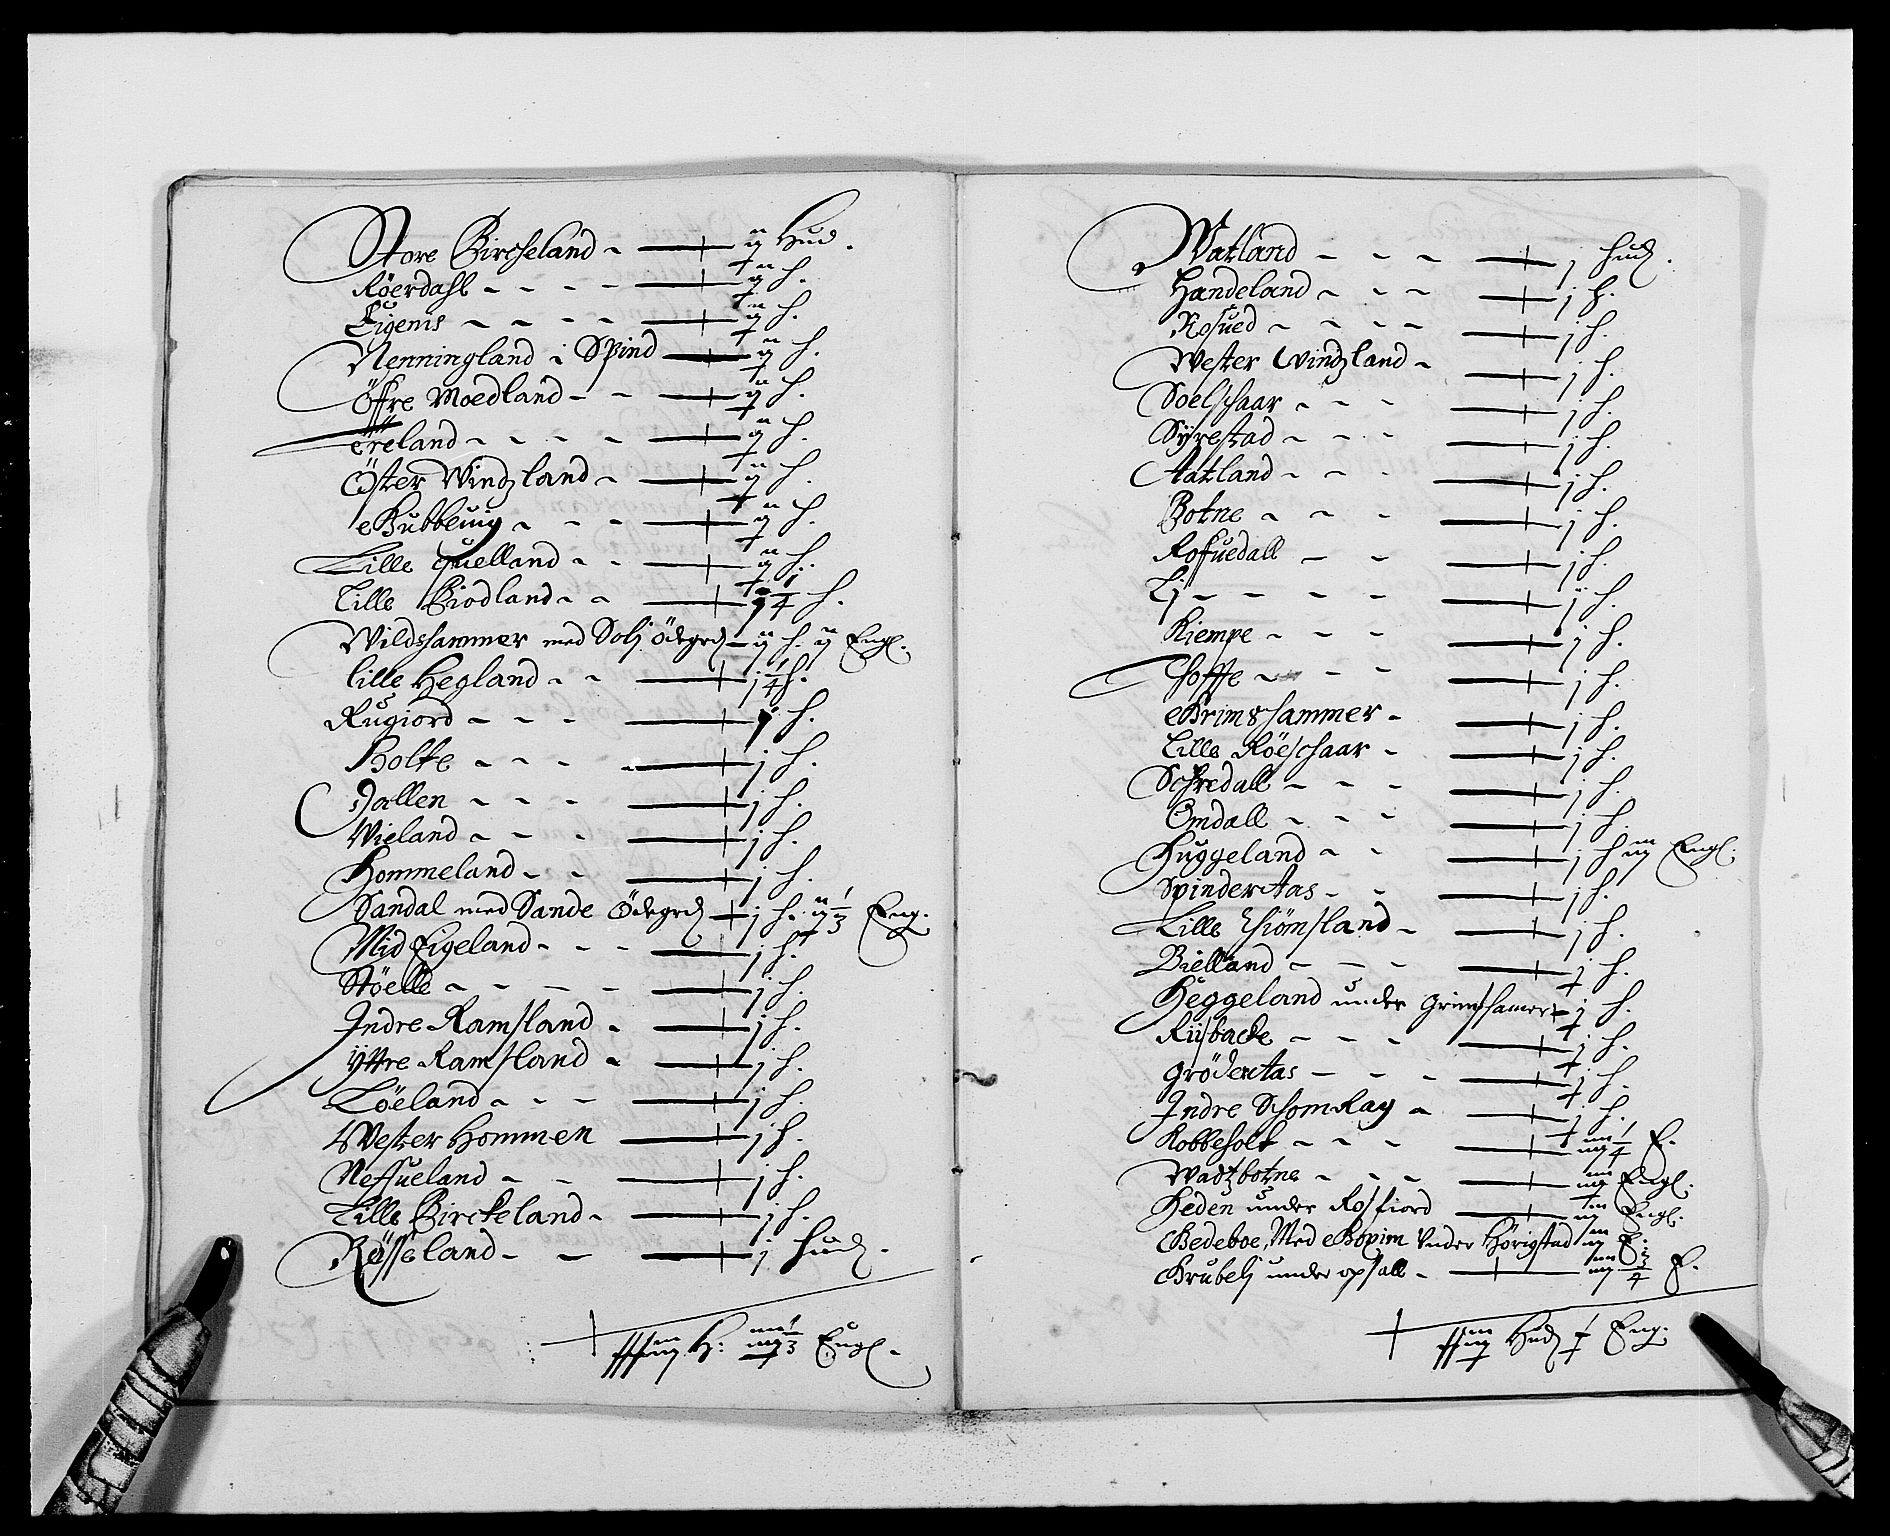 Store Bircheland - ij Hud.
Röerdahl - - - - ij h.
Eigenis - - - - ij h.
Nenningland i Spind ij h.
Öffre Moedland - - ij h.
Ereland - - - - ij h.
Öster Windzland - ij h.
- - - ij h.
Lille Quelland - - ij h.
Lille Biodland - - h.
Wildshammer med Solj Ödegrd ij h. ij Engl.
Lille Hegland - - j 1/4 h.
Rugiord - - - h.
Holte - - - j h.
Dallen - - - j h.
Wieland - - - j h.
Hommeland - - j h.
Sandal med Sande Ödegrd j h. ij 1/3 Eng.
Mid Eigeland - - - j h.
Stöelle - - - - - j h.
Indre Ramsland - j h.
Yttre Ramsland - j h.
Löeland - - - j h.
Wester Hommen j h.
Nessueland - - j h.
Lille Birckeland - j h.
Rösseland - - j Hud
H: 1/3 Engl.
Watland - - - j Hud.
Handeland - - - j h.
Rosued - - - - j h.
Wester Windzland - j h.
Soelshaar - - - j h.
Syrestad - - - j h.
Aatland - - - j h.
Botne - - - j h.
Rossuedall - - j h.
Lj - - - - j h.
Kiempe - - - j h.
- - - j h.
Grimshammer - j h.
Lille Röeschaar - j h.
Schredall - - - j h.
Omdall - - - j h.
Huggeland - - j h iij Engl.
Spinder Aas - - j h.
Lille j h.
Bielland - - - j h.
Heggeland under Grimshamer j h.
Riisbacke - - - j h.
Gröder Aas - - - j h.
Indre Schomrag - j h.
Kobbeholt - - - iij 1/4 E.
Wadtzbotne - - - iij Engl.
Heden under Rosfiord iij Engl.
Bedeboe, Med under iij E.
Grubelj under opsall - iij 3/4 E.
Hud Eng: